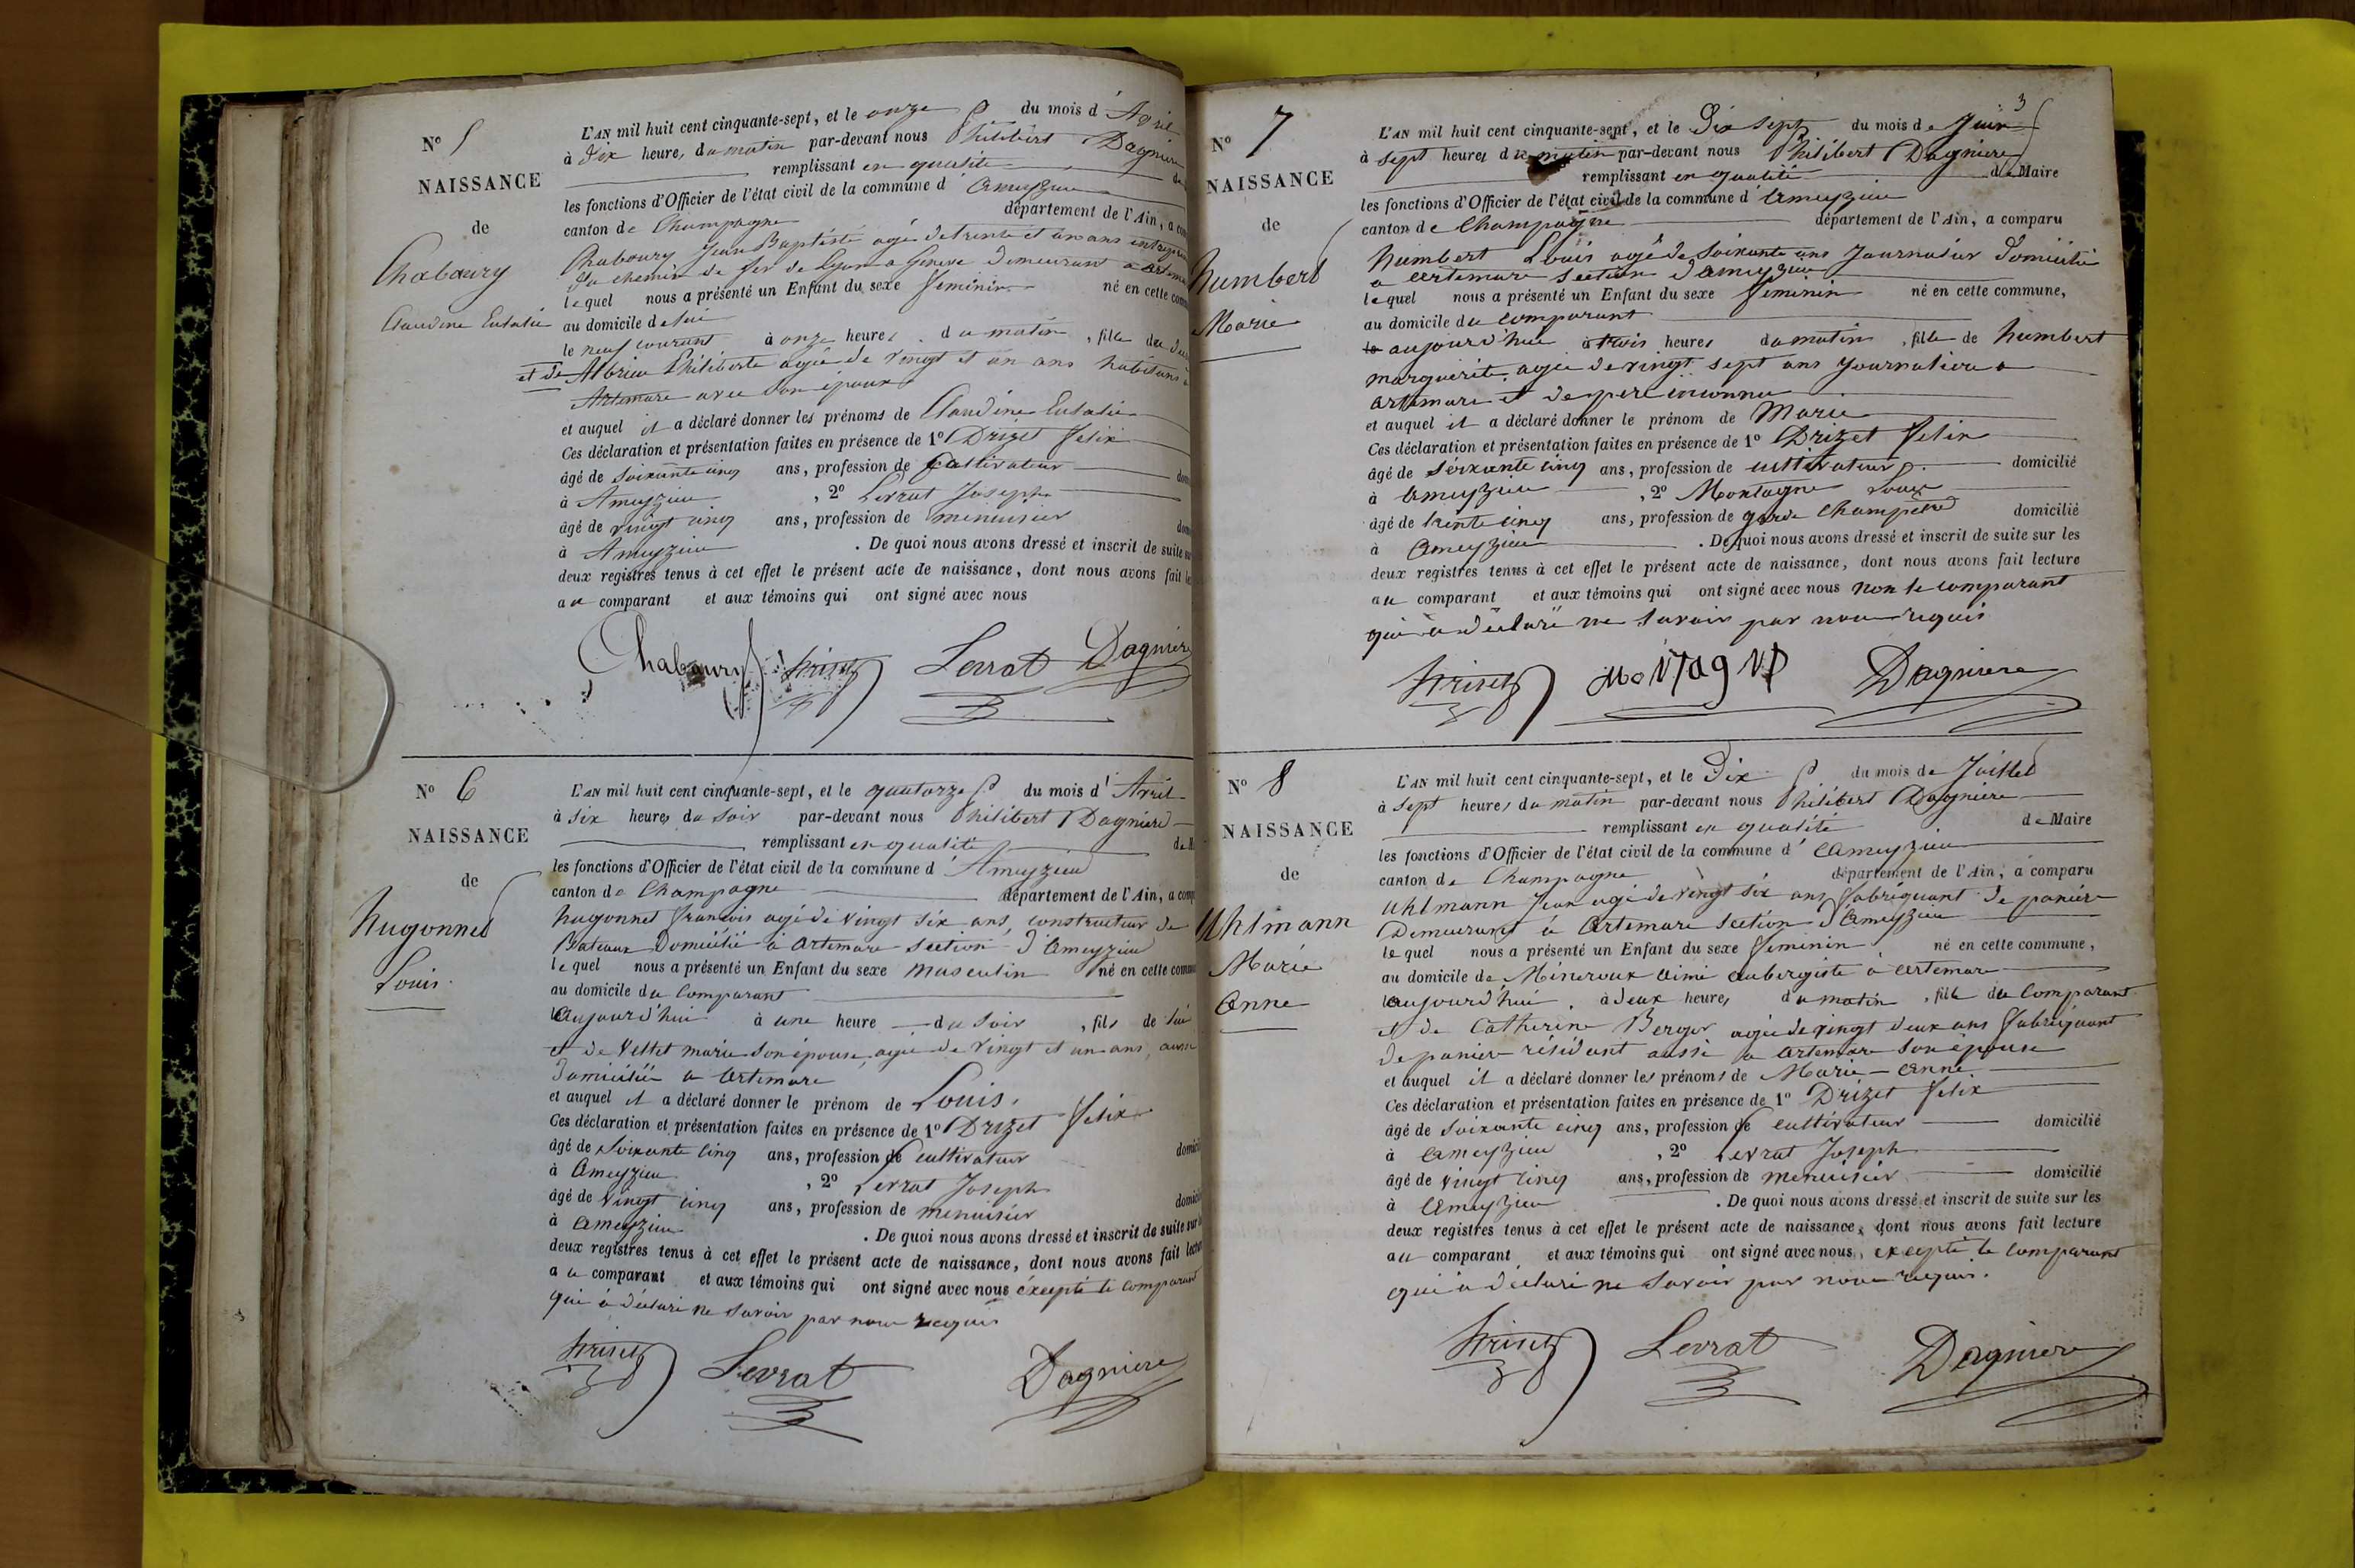 N° 5
NAISSANCE
de
Chaboury
Claudine Eulalie
L'AN mil huit cent cinquante-sept, et le onze du mois d'Avril
à dix heures du matin par-devant nous Philibert Dagniere
remplissant en qualité de
les fonctions d'Officier de l'état civil de la commune d'Ameyzieu
canton de Champagne département de l'Ain, a
Chaboury Jean Baptiste agé de trente et un ans
du chemin de fer de Lyon a Geneve demeurant a
lequel nous a présenté un Enfant du sexe feminin né en cette
au domicile de lui
le neuf courant à onze heures du matin, fille du
et de Albrieu Philiberte agée de vingt et un ans habitant
Artemare avec son époux
et auquel il a déclaré donner les prénoms de Claudine Eulalie
Ces déclaration et présentation faites en présence de 1° Drizet Felix
âgé de soixante cinq ans, profession de Cultivateur
à Ameyzieu, 2° Levrat Joseph
âgé de vingt cinq ans, profession de menuisier
à Ameyzieu. De quoi nous avons dressé et inscrit de suite sur
deux registres tenus à cet effet le présent acte de naissance, dont nous avons fait
au comparant et aux témoins qui ont signé avec nous
Chaboury Drizet Levrat Dagniere
N° 6
NAISSANCE
de
hugonnet
Louis
L'AN mil huit cent cinquante-sept, et le quatorze du mois d'Avril
à six heures du soir par-devant nous Philibert Dagniere
remplissant en qualité de
les fonctions d'Officier de l'état civil de la commune d'Ameyzieu
canton de Champagne département de l'Ain, a
hugonnet francois agé de vingt six ans, constructeur de
Bateaux Domicilié à Artemare section d'Ameyzieu
lequel nous a présenté un Enfant du sexe masculin né en cette
au domicile du Comparant
aujourd'hui à une heure du soir, fils de lui
et de Vettet marie son épouse, agée de vingt et un ans, aussi
domiciliée a Artemare
et auquel il a déclaré donner le prénom de Louis.
Ces déclaration et présentation faites en présence de 1° Drizet Felix
âgé de soixante cinq ans, profession de cultivateur
à Ameyzieu, 2° Levrat Joseph
âgé de vingt cinq ans, profession de menuisier
à Ameyzieu. De quoi nous avons dressé et inscrit de suite sur
deux registres tenus à cet effet le présent acte de naissance, dont nous avons fait
au comparant et aux témoins qui ont signé avec nous éxcepté le comparant
qui à déclaré ne savoir par nous requis
Drizet Levrat Dagniere
3
N° 7
NAISSANCE
de
humbert
Marie
L'AN mil huit cent cinquante-sept, et le Dix sept du mois de Juin
à sept heures du matin par-devant nous Philibert Dagniere
remplissant en qualité de Maire
les fonctions d'Officier de l'état civil de la commune d'Ameyzieu
canton de Champagne département de l'Ain, a comparu
humbert Louis agé de soixante ans Journalier domicilié
a Artemare section d'ameyzieu
lequel nous a présenté un Enfant du sexe feminin né en cette commune,
au domicile du comparant
le aujourd'hui à trois heures du matin, fille de humbert
marguerite agée de vingt sept ans Journaliere a
artemare et de pere inconnu
et auquel il a déclaré donner le prénom de Marie
Ces déclaration et présentation faites en présence de 1° Drizet Felix
âgé de soixante cinq ans, profession de cultivateur domicilié
à Ameyzieu, 2° Montagne Louis
âgé de trente cinq ans, profession de garde Champetre domicilié
à Ameyzieu. De quoi nous avons dressé et inscrit de suite sur les
deux registres tenus à cet effet le présent acte de naissance, dont nous avons fait lecture
au comparant et aux témoins qui ont signé avec nous non le comparant
qui à déclaré ne savoir par nous requis
Drizet MoNTagNe Dagniere
N° 8
NAISSANCE
de
Uhlmann
Marie
Anne
L'AN mil huit cent cinquante-sept, et le Dix du mois de Juillet
à sept heures du matin par-devant nous Philibert Dagniere
remplissant en qualité de Maire
les fonctions d'Officier de l'état civil de la commune d'Ameyzieu
canton de Champagne département de l'Ain, a comparu
Uhlmann Jean agé de vingt six ans fabriquant de panier
Demeurant à Artemare section d'Ameyzieu
lequel nous a présenté un Enfant du sexe feminin né en cette commune,
au domicile de Mineroux Aimé aubergiste à Artemare
aujourd'hui à deux heures du matin, fille du Comparant
et de Catherine Berger agée de vingt deux ans fabriquant
de panier résidant aussi a Artemare son épouse
et auquel il a déclaré donner les prénoms de Marie - Anne
Ces déclaration et présentation faites en présence de 1° Drizet Felix
âgé de soixante cinq ans, profession de cultivateur domicilié
à Ameyzieu, 2° Levrat Joseph
âgé de vingt cinq ans, profession de menuisier domicilié
à Ameyzieu. De quoi nous avons dressé et inscrit de suite sur les
deux registres tenus à cet effet le présent acte de naissance, dont nous avons fait lecture
au comparant et aux témoins qui ont signé avec nous, excepté le comparant
qui à déclaré ne savoir par nous requis.
Drizet Levrat Dagniere